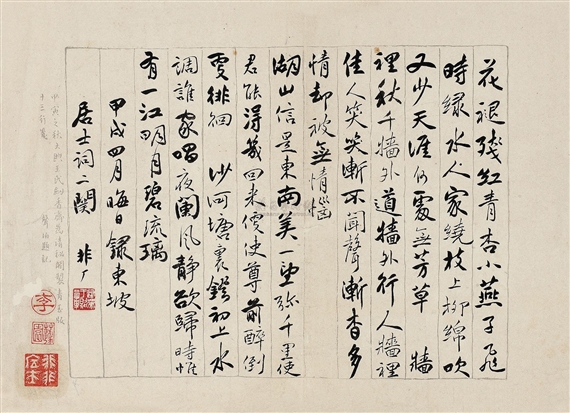 花褪残红青杏小燕子飛
時绿水人家繞枝上柳綿吹
又少天涯何處無芳草 牆
裡秋千牆外道牆外行人牆裡
佳人笑笑漸不聞聲漸杳多
情却被無情惱
湖山信是東南美一望弥千里使
君能得幾回来便使尊前醉倒
更徘徊 沙河塘裏鐙初上水
調誰家唱夜闌風靜欲歸時惟
有一江明月碧琉璃
甲戌四月晦日録東坡
居士詞二闋 非厂
李